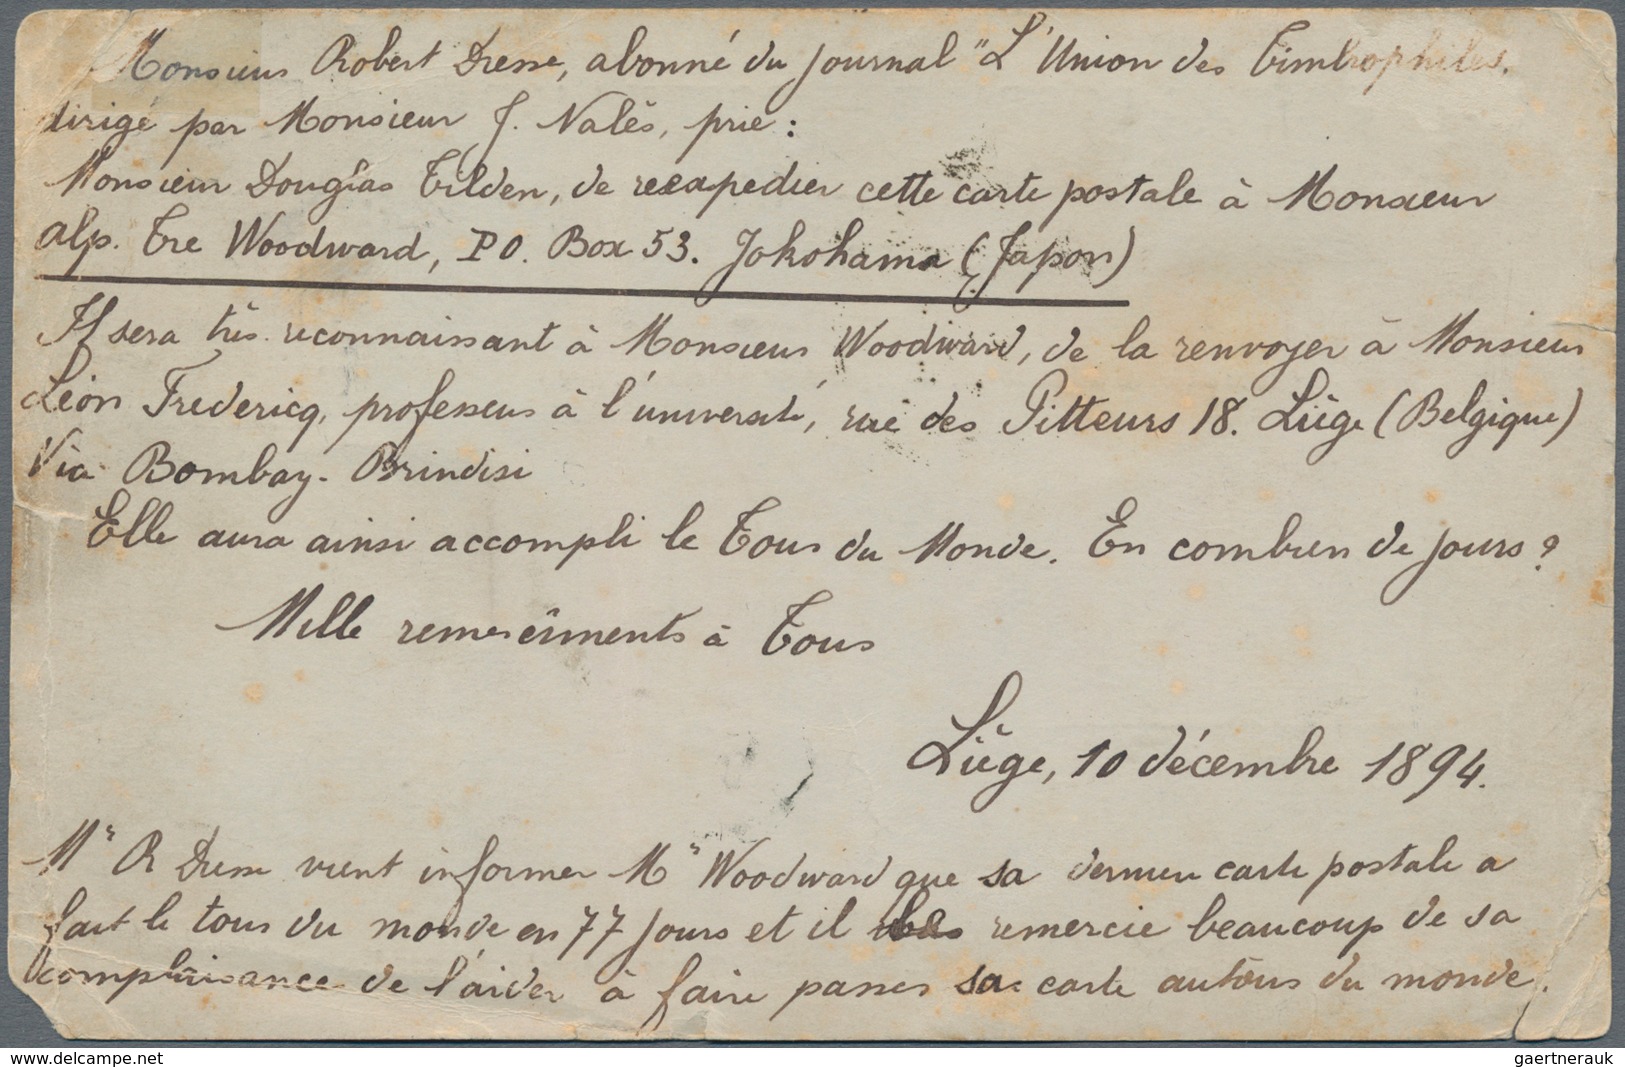 Monsieur Robert Dresse, abonné du journal "L'Union des Timbrophiles.
dirigé par Monsieur J. Nalès, prie :
Monsieur Douglas Tilden, de reexpedier cette carte postale à Monsieur
Alp. Tre Woodward, PO. Box 53. Jokohama (Japon)
Il sera très reconnaissant à Monsieur Woodward, de la renvoyer à Monsieur
Léon Fredericq, professeur à l'université, rue des Pitteurs 18. Liège (Belgique)
Via Bombay - Brindisi
Elle aura ainsi accompli le Tour du Monde. En combien de jours ?
Mille remercîments à Tous
Liège, 10 décembre 1894.
Mr R Dresse vient informer Mr Woodward que sa dernier carte postale a
fait le tour du monde en 77 jours et il remercie beaucoup de sa
complaisance de l'aider à faire passer sa carte autour du monde.
www.delcampe.net
gaertnerauk